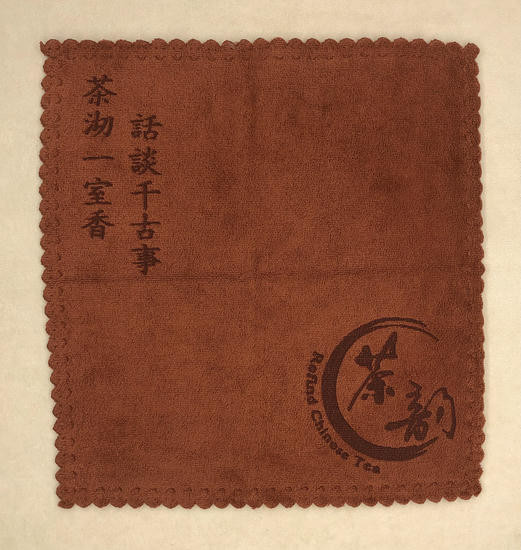 話談千古事
茶沏一室香
茶韵
Refind Chinese Tea